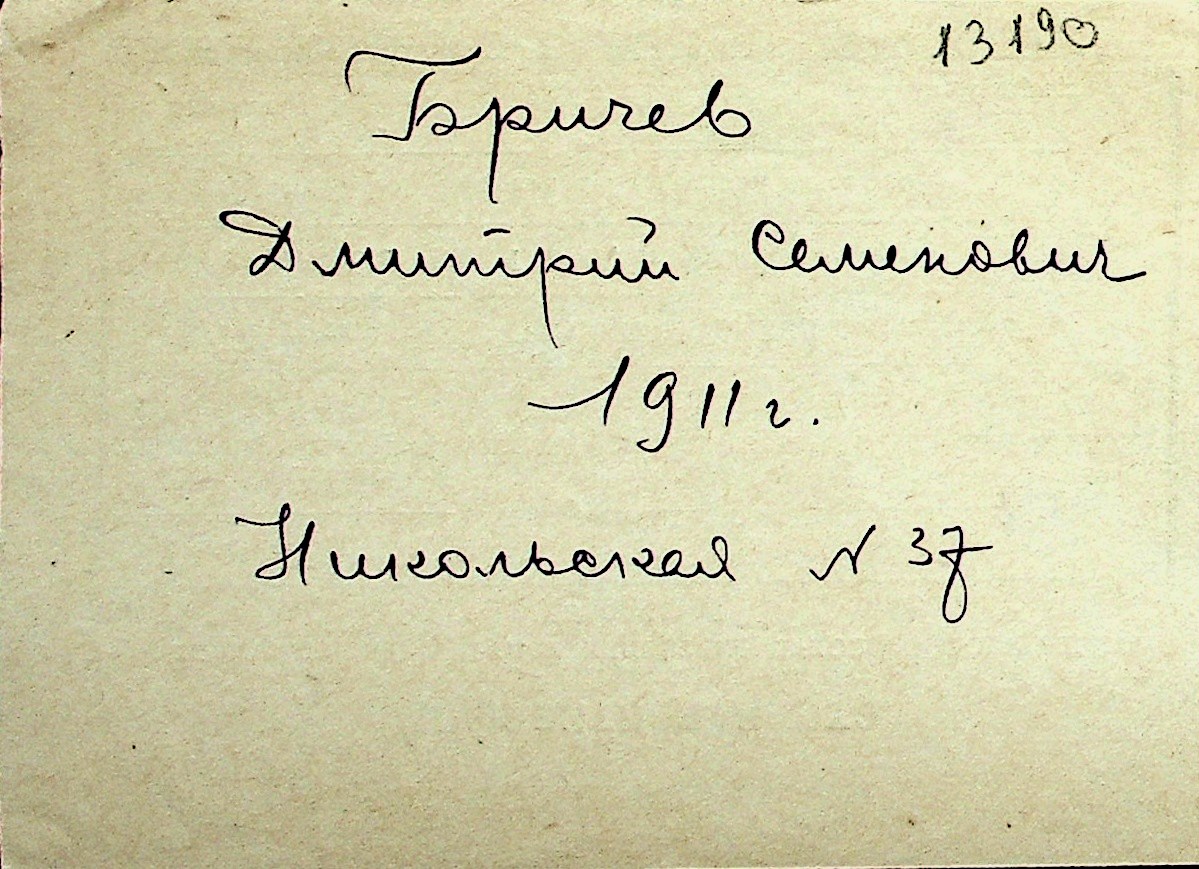 13190
Бричев
Дмитрий Семенович
1911 г.
Никольская N 37